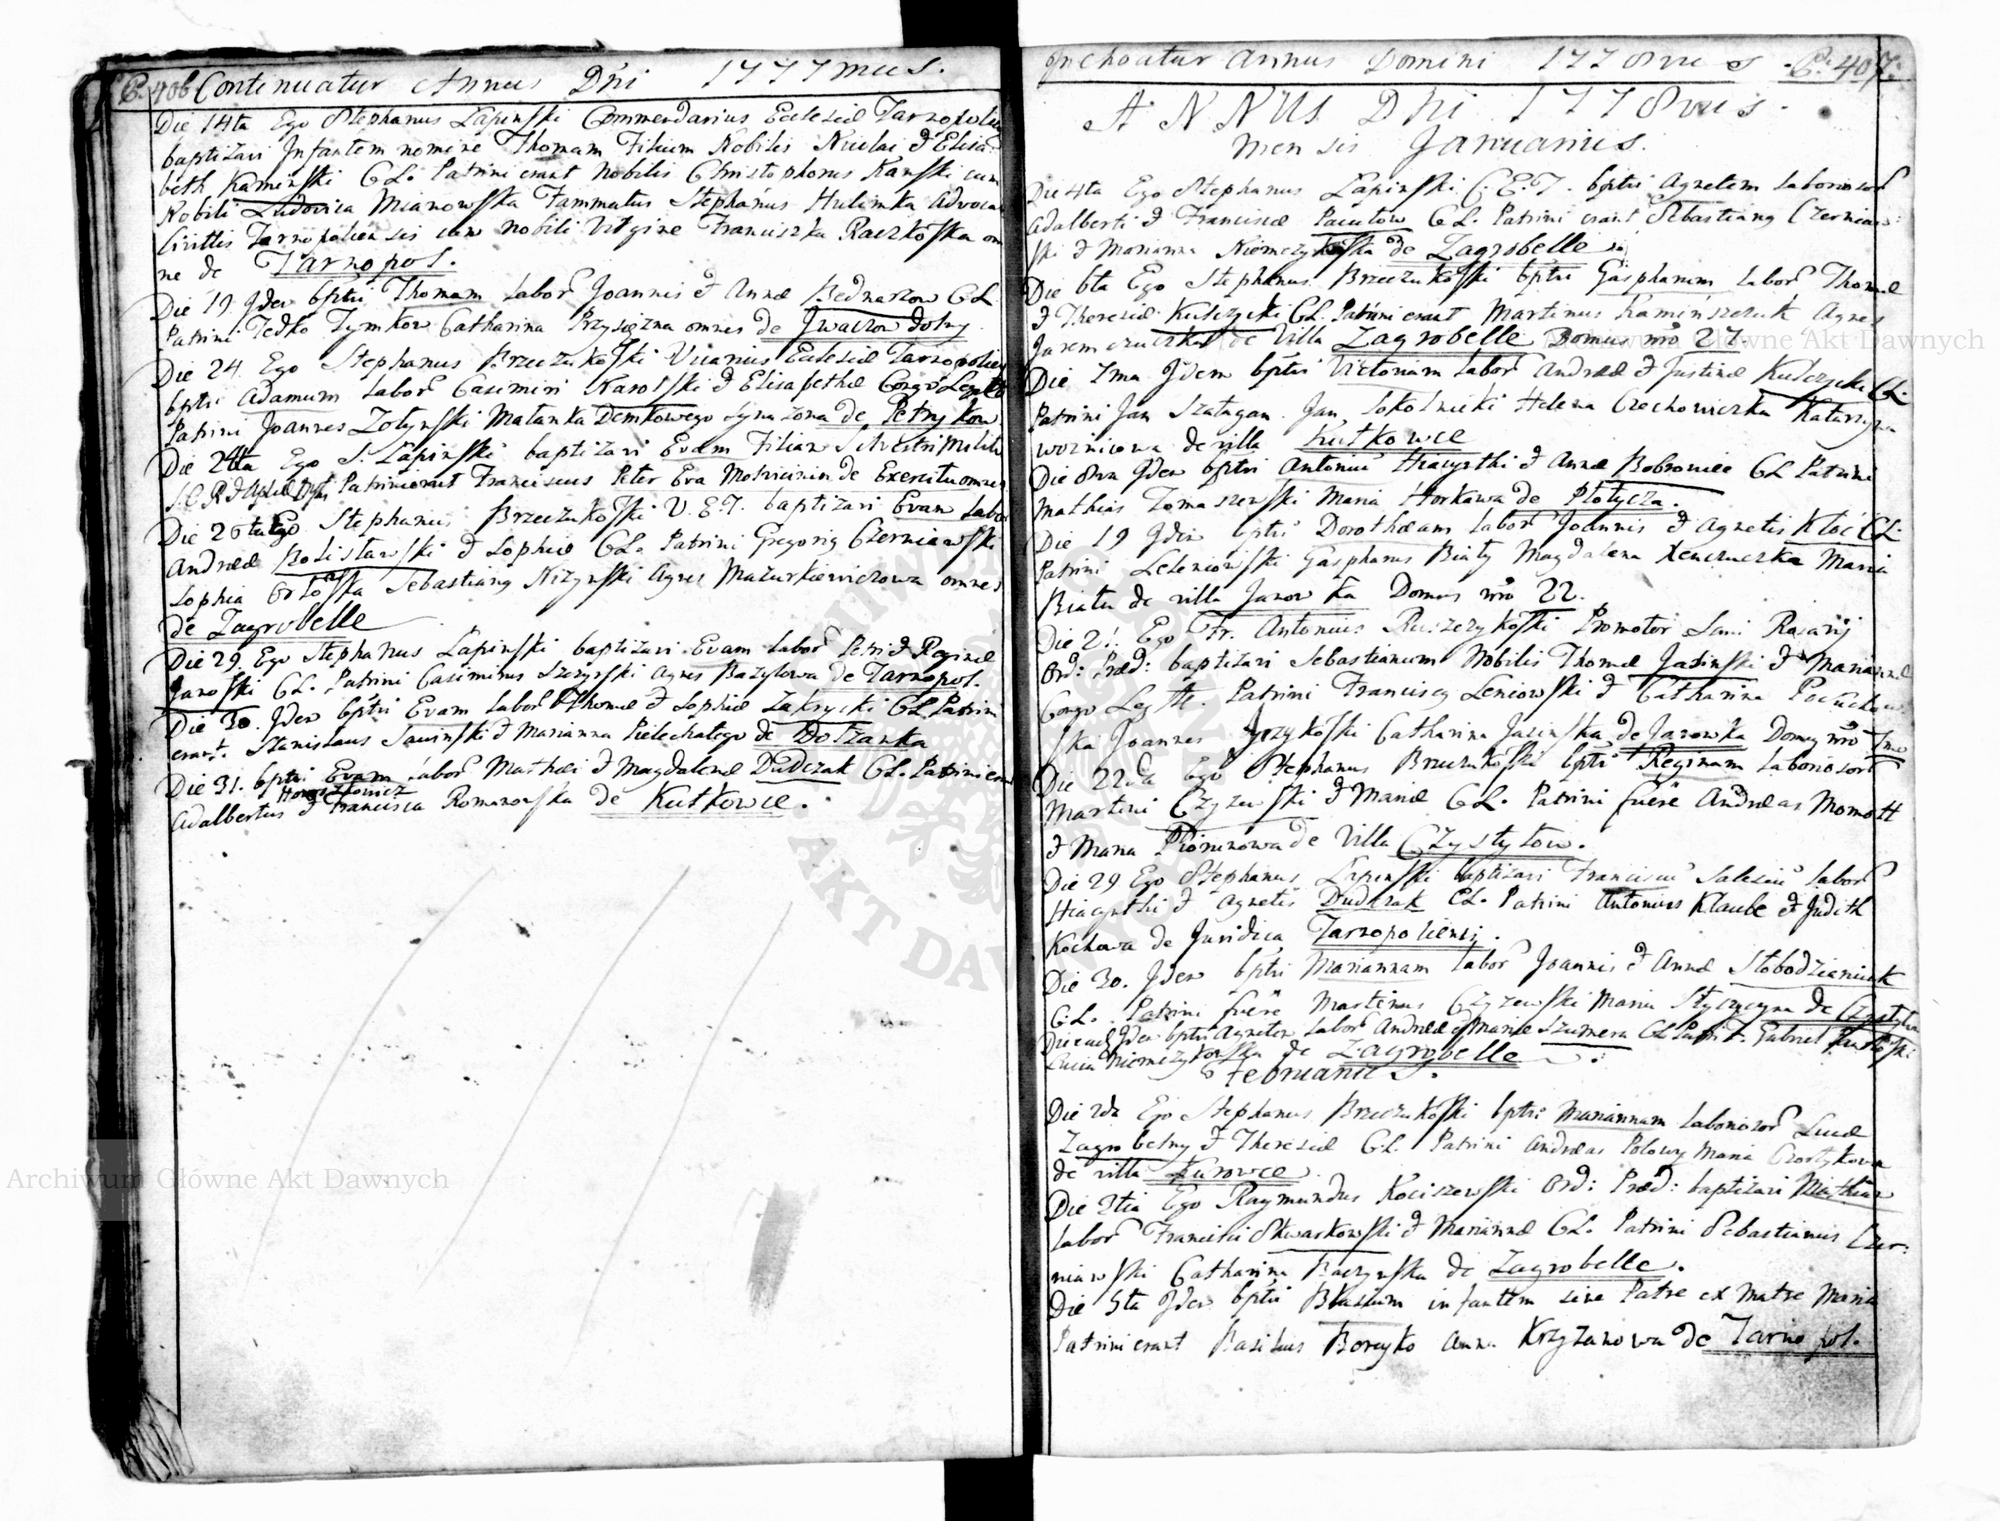 P. 406 Continuatur Annus Dni 1777mus.
Die 14ta Ego Stephanus Łapinski Commendarius Ecclesiæ Tarnopolien
baptizavi Infantem nomine Thomam Filium Nobilis Nicolai & Elisa
beth Kaminski C.L. Patrini erant Nobilis Christophorus Kanski cum
Nobili Ludovica Mianowska Fammatus Stephanus Hulimka Advocat
Civitis Tarnopoliensis cum Nobili Virgine Franciszka Raczkoska om
nes de Tarnopol.
Die 19. Jdem bptvi Thomam Labor Joannis & Annæ Bednarzow C.L.
Patrini Fedko Tymkow Catharina Przysiężna omnes de Jwaczow dolny.
Die 24. Ego Stephanus Brzezukoski Vicarius Ecclesiæ Tarnopolien
bptvi Adamum Labor Casimiri Karolski & Elisabethæ Congo Legitt
Patrini Joannes Zołynski Matanka Demkowego Synazona de Petrykow
Die 24ta Ego S. Łapinski baptizavi Evam Filiam Silvestri Milit
Patrini erant Franciscus Peter Eva de Exercitu omnes
Die 26 Ego Stephanus Brzezukoski V.E.T. baptizavi Evam Labor
Andreæ Rolistawski & Sophiæ C.L. Patrini Gregorig Czerniawski
Sophia Orłoska Sebastiang Nizynski Agnes Mazurkiewiczowa omnes
de Zagrobelle
Die 29. Ego Stephanus Łapinski baptizavi Evam Labor Petri & Reginæ
Janoski C.L. Patrini Casimirus Szczyrski Agnes Bazylowa de Tarnopol.
Die 30. Jdem bptvi Evam Labor Thomæ & Sophiæ Zakrycki C.L. Patrini
erant. Stanislaus Sawinski & Marianna Pielechatego de Dolzanka
Die 31. bptvi Evam Labor Mathæi & Magdalenæ Dudczak C.L. Patrini erant
Adalbertus & Francisca Romanowska de Kutkowce.
Jnchoatur Annus Domini 1778vus. P. 407.
ANNUS Dni 1778vus.
Mensis Januarius.
Die 4ta Ego Stephanus Łapinski C.E.T. bptvi Agnetem Laboriosor
Adalberti & Franciscæ Pacutow C.L. Patrini erant Sebastiang Czerniaw:
ski & Marianna Niemczykoska de Zagrobelle.
Die 6ta Ego Stephanus Brzezukoski bptvi Gasparum Labor Thomæ
& Theresiæ Kulczycki C.L. Patrini erant Martinus Kaminszczuk Agnes
Jaremczuczka de Villa Zagrobelle Domus nro 27.
Die 7ma Jdem bptvi Victoriam Labor Andreæ & Justinæ Kulczycki C.L.
Patrini Jan Szatagan. Jan Sokolnicki Helena Czechowiczka Katarzyna
woznicowa de villa Kutkowce
Die 8va Jdem bptvi Antoniu Hiacynthi & Annæ Bobrowiec C.L. Patrini
Mathias Tomaszewski Maria Horkawa de Płotycza.
Die 19 Jdem bptvi Dorotheam Labor Joannis & Agnetis Kloc C.L.
Patrini Leleniowski Gasparus Biały Magdalena Xenczuczka Maria
Biała de villa Janowka Domus nro 22.
Die 21. Ego Fr. Antonius Ruszczykoski Promotor Sani Rosarij
Ord: Præd: baptizavi Sebastianum Nobilis Thomæ Jasinski & Mariannæ
Congo Legtt. Patrini Francisg Leniowski & Catharina
ska Joannes Jezykoski Catharina Jasinska de Janowka Domg nro 7mo
Die 22da Ego Stephanus Brzezukoski bptvi Reginam Laboriosor
Martini Czyzewski & Mariæ C.L. Patrini fuere Andreas Momott
& Maria Pioninowa de Villa Czystyłow.
Die 29 Ego Stephanus Łapinski baptizavi Franciscu Salesiu Labor
Hiacynthi & Agnetis Dudczak C.L. Patrini Antonius Klaube & Judith
Kochowa de Juridica Tarnopoliensi.
Die 30. Jdem bptvi Mariannam Labor Joannis & Annæ Słobodzianiuk
C.L. Patrini fuere Martinus Czyzewski Maria Styczncyna de Czystyłow
Die ead Jdem bptvi Agneten Labor Andreæ & Mariæ Szumera C.L. Patri. Gabriel
Lucia Niemczykoska de Zagrobelle
Februarius.
Die 2da Ego Stephanus Brzezukoski bptvi Mariannam Laboriosor Lucæ
Zagrobelny & Theresiæ C.L. Patrini Andreas Polowy Maria Czortykowa
de villa Kurowce.
Die 3tia Ego Raymundus Kociszewski Ord: Præd: baptizavi Mathiam
Labor Francisci Skwarkowski & Mariannæ C.L. Patrini Sebastianus Czer:
niawski Catharina Raczynska de Zagrobelle.
Die 5ta Jdem bptvi Blasium infantem sine Patre ex Matre Maria
Patrini erant Basilius Boreyko Anna Krzyzanowa de Tarnopol.
Archiwum Główne Akt Dawnych
Archiwum Główne Akt Dawnych